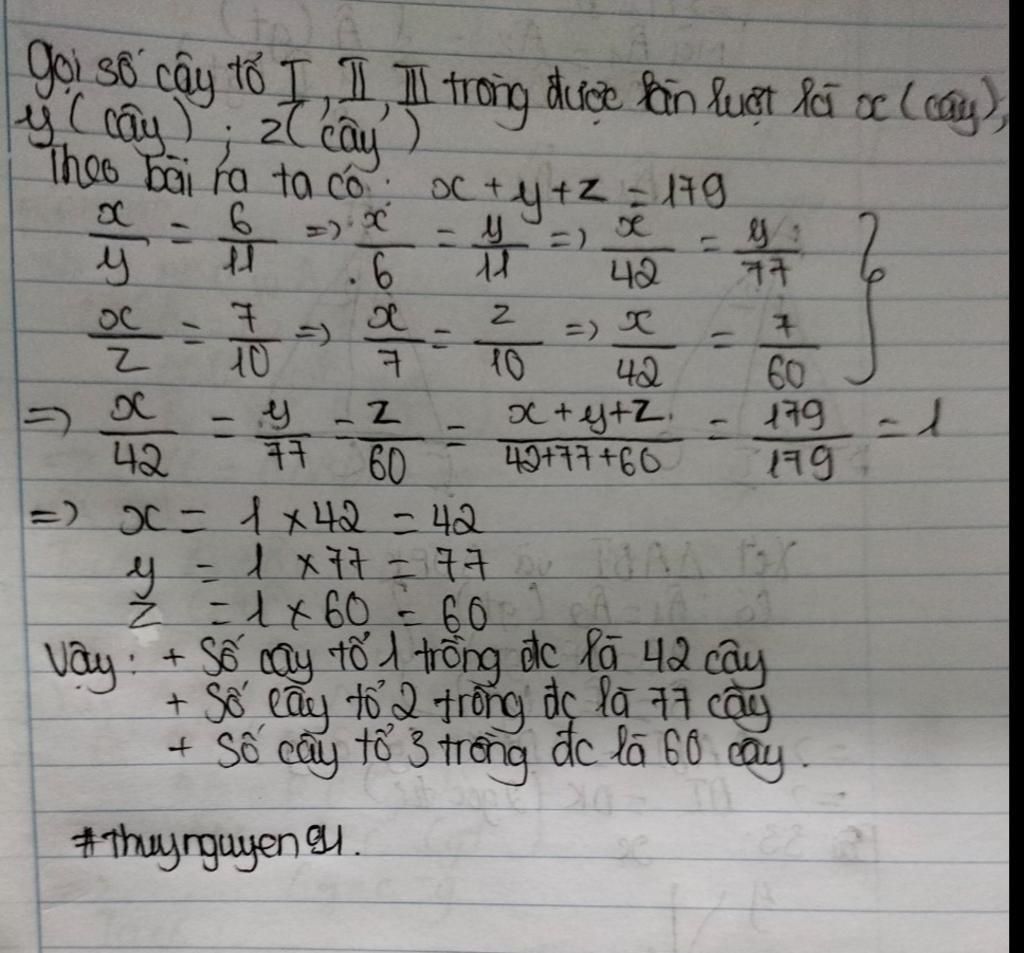 Gọi số cây tổ I, II, III trồng được lần lượt là x (cây),
y (cây); z (cây)
Theo bài ra ta có: x + y + z = 179
x/y = 6/11 => x/6 = y/11 => x/42 = y/77
x/z = 7/10 => x/7 = z/10 => x/42 = 7/60
=> x/42 = y/77 = z/60 = x+y+z/42+77+60 = 179/179 = 1
=> x = 1 × 42 = 42
y = 1 × 77 = 77
z = 1 × 60 = 60
Vậy: + Số cây tổ 1 trồng đc là 42 cây
+ Số cây tổ 2 trồng đc là 77 cây
+ Số cây tổ 3 trồng đc là 60 cây.